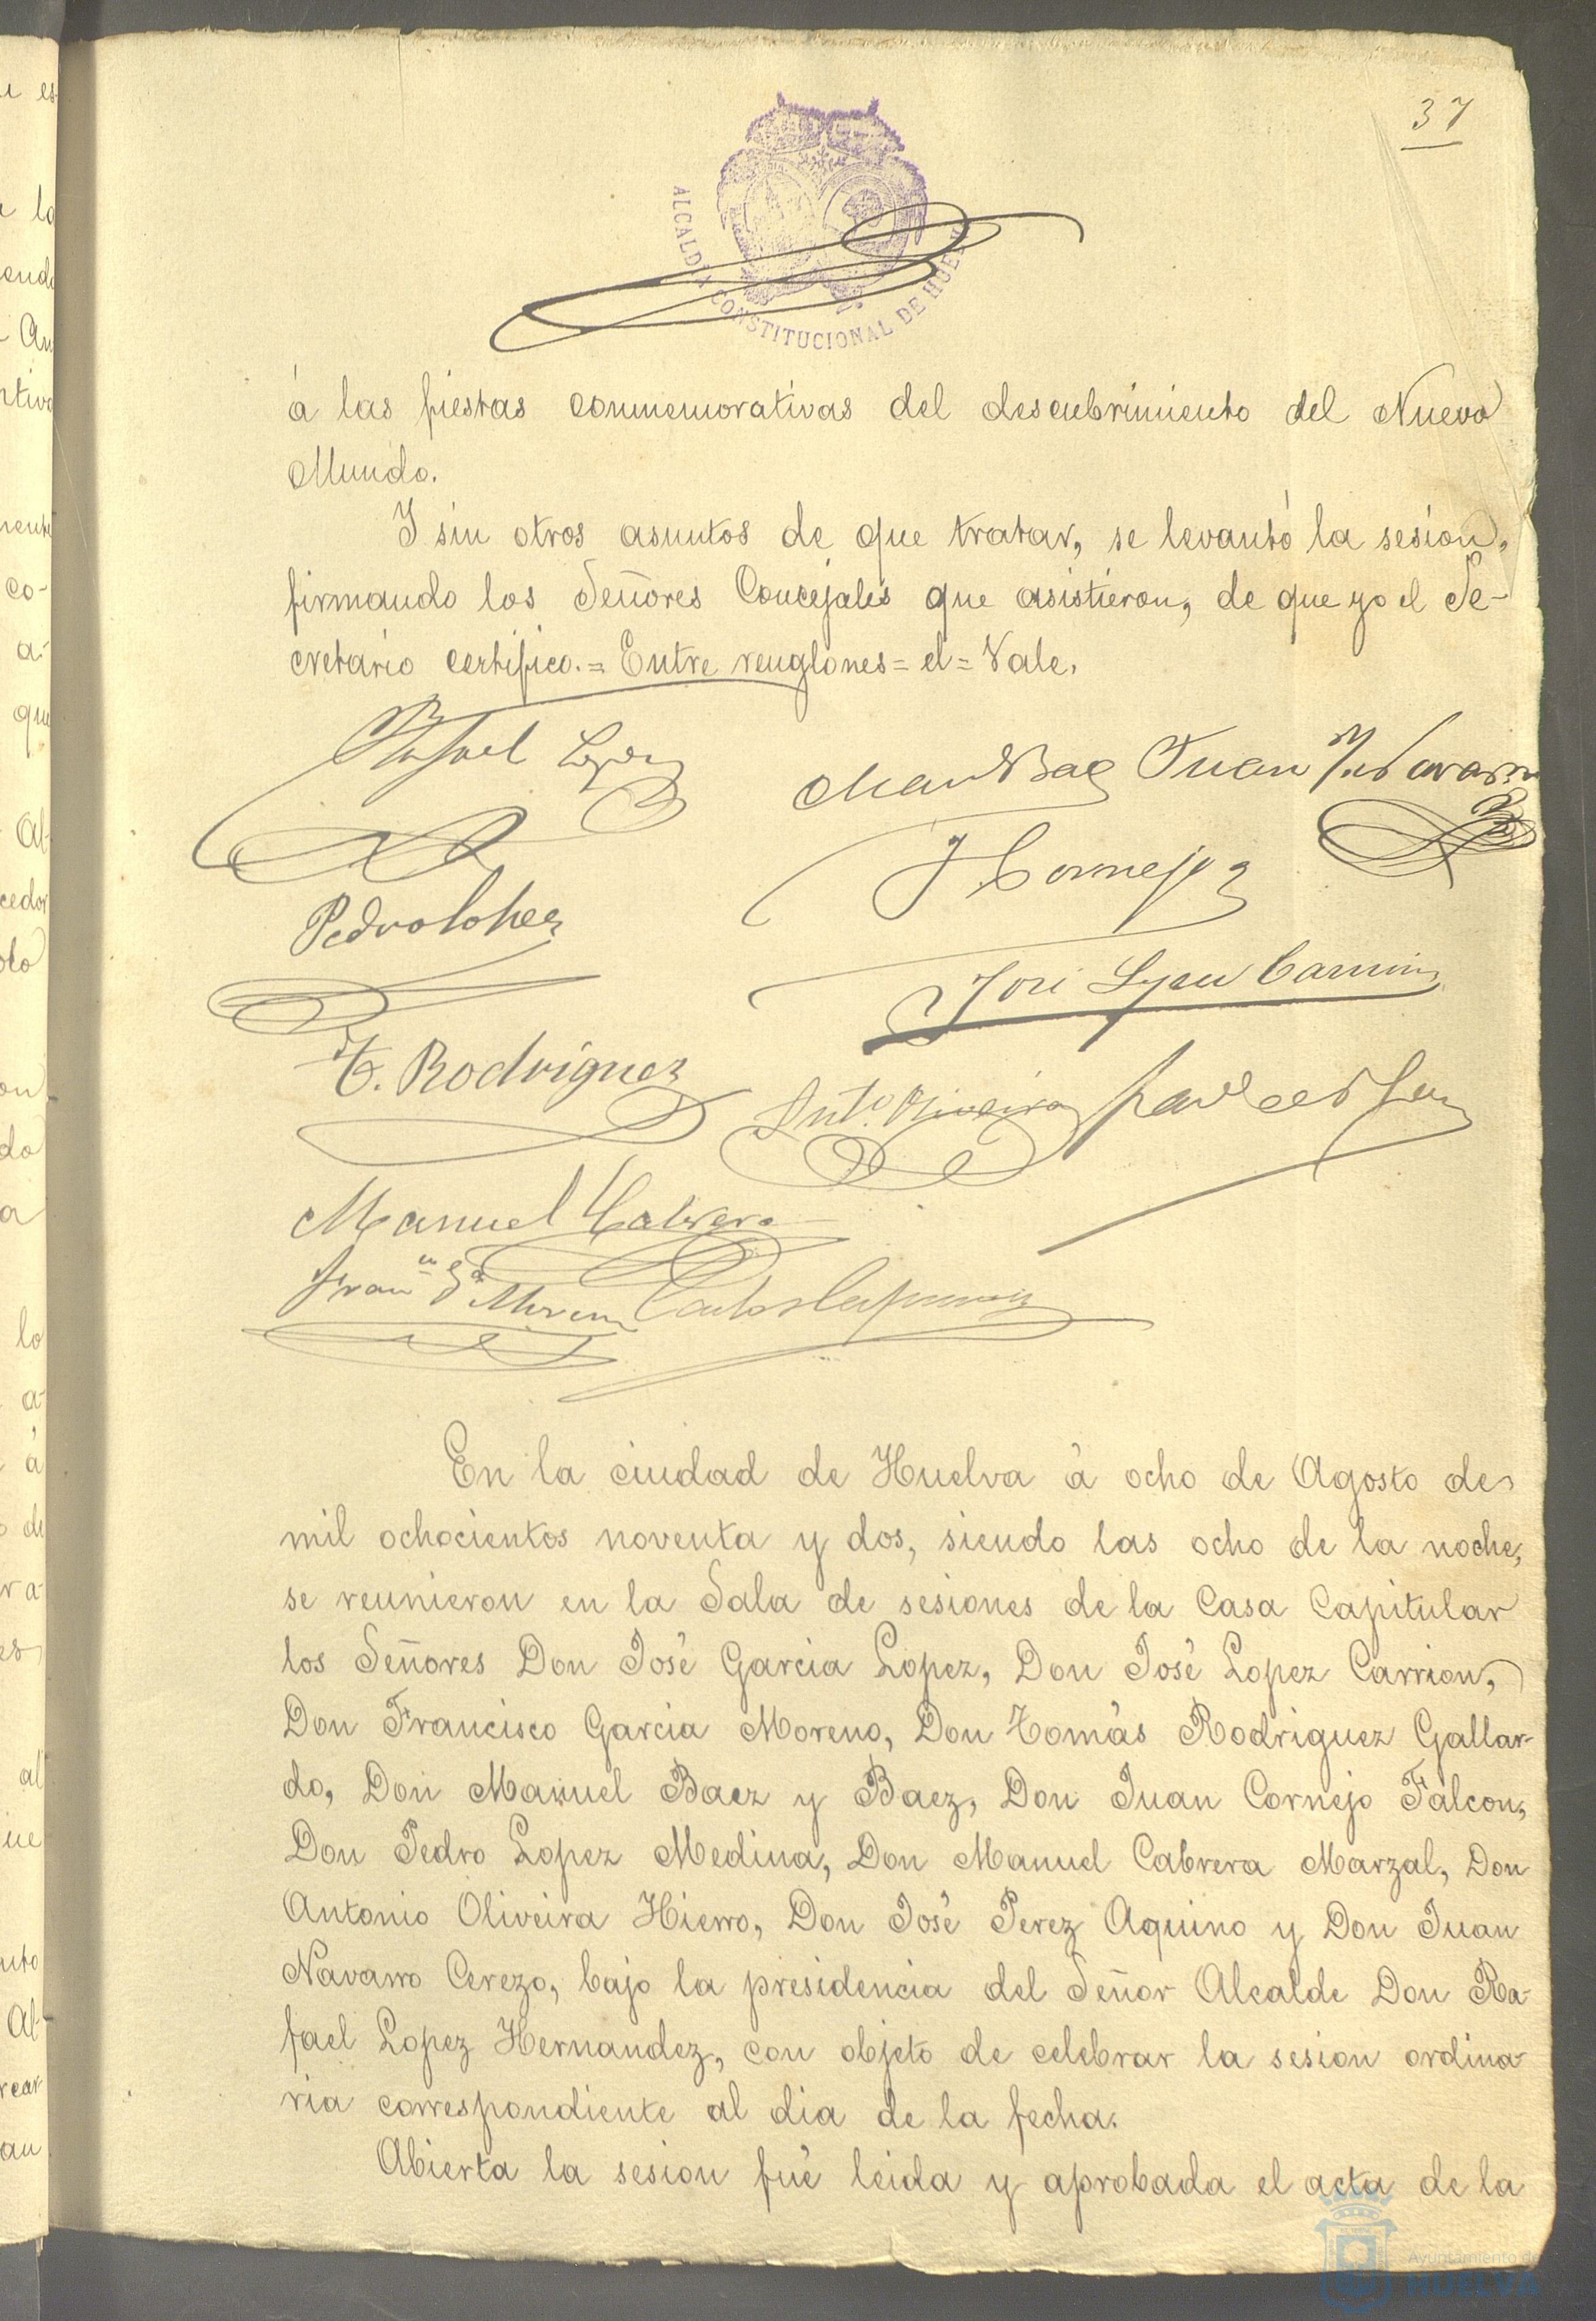 37
ALCALDIA CONSTITUCIONAL DE HUELVA
á las fiestas conmemorativas del descubrimiento del Nuevo
Mundo.
Y sin otros asuntos de que tratar, se levantó la sesion,
firmando los Señores Concejales que asistieron, de que yo el Se-
cretario certifico.= Entre renglones= el= Vale.
Rafael Lopez
Man Baez Juan Navarro
J Cornejo
Pedro Lopez
José Lopez Carrion
T. Rodriguez
Ant.º Oliveira
Manuel Cabrera
Fran.co Ga Moreno
En la ciudad de Huelva á ocho de Agosto de
mil ochocientos noventa y dos, siendo las ocho de la noche,
se reunieron en la Sala de sesiones de la Casa Capitular
los Señores Don José Garcia Lopez, Don José Lopez Carrion,
Don Francisco Garcia Moreno, Don Tomás Rodriguez Gallar-
do, Don Manuel Baez y Baez, Don Juan Cornejo Falcon,
Don Pedro Lopez Medina, Don Manuel Cabrera Marzal, Don
Antonio Oliveira Hierro, Don José Perez Aquino y Don Juan
Navarro Cerezo, bajo la presidencia del Señor Alcalde Don Ra-
fael Lopez Hernandez, con objeto de celebrar la sesion ordina-
ria correspondiente al dia de la fecha.
Abierta la sesion fué leida y aprobada el acta de la
Ayuntamiento de
HUELVA